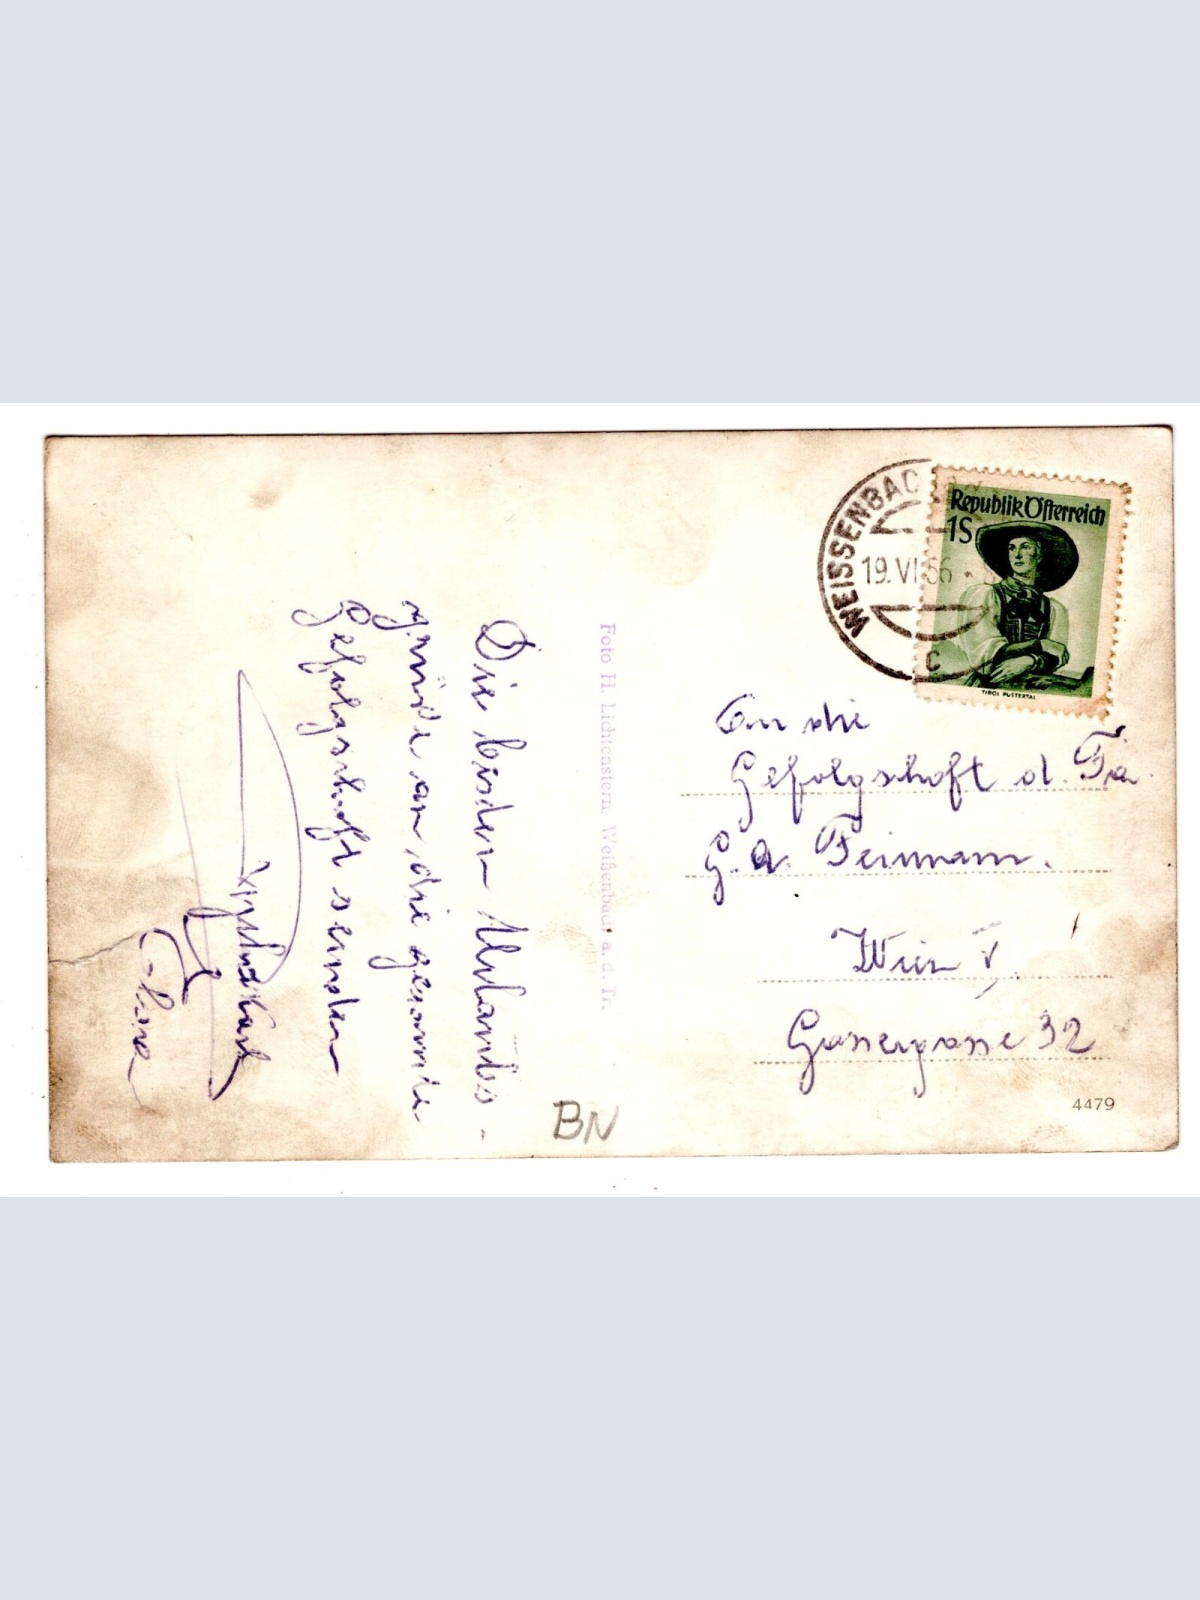 Die beiden Urlaubs-
grüße an die gesamte
Gefolgschaft senden
Foto H. Lichtenstern, Weißenbach a. d. Tr.
WEISSENBAC
19.VI.56
C
Republik Österreich
1S
TIROL PUSTERTAL
An die
Gefolgschaft d. Fa.
G. A. Feinmann.
Wien V,
Gassergasse 32
4479
BN